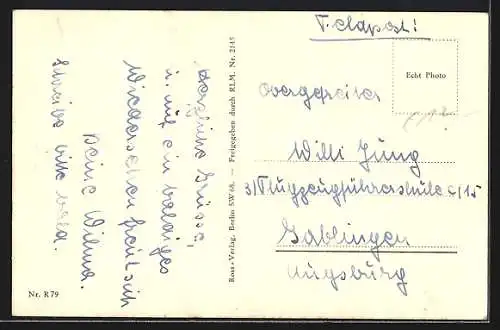 Feldpost!
Echt Photo
Obergefreiter
Willi Jung
3/Flugzeugführerschule c/15
Gablingen
Augsburg
Ross-Verlag, Berlin SW 68. — Freigegeben durch RLM. Nr. 2145
Herzliche Grüsse,
u. auf ein baldiges
Wiedersehen freut sich
Deine Wilma.
Schreibe bitte bald.
Nr. R 79